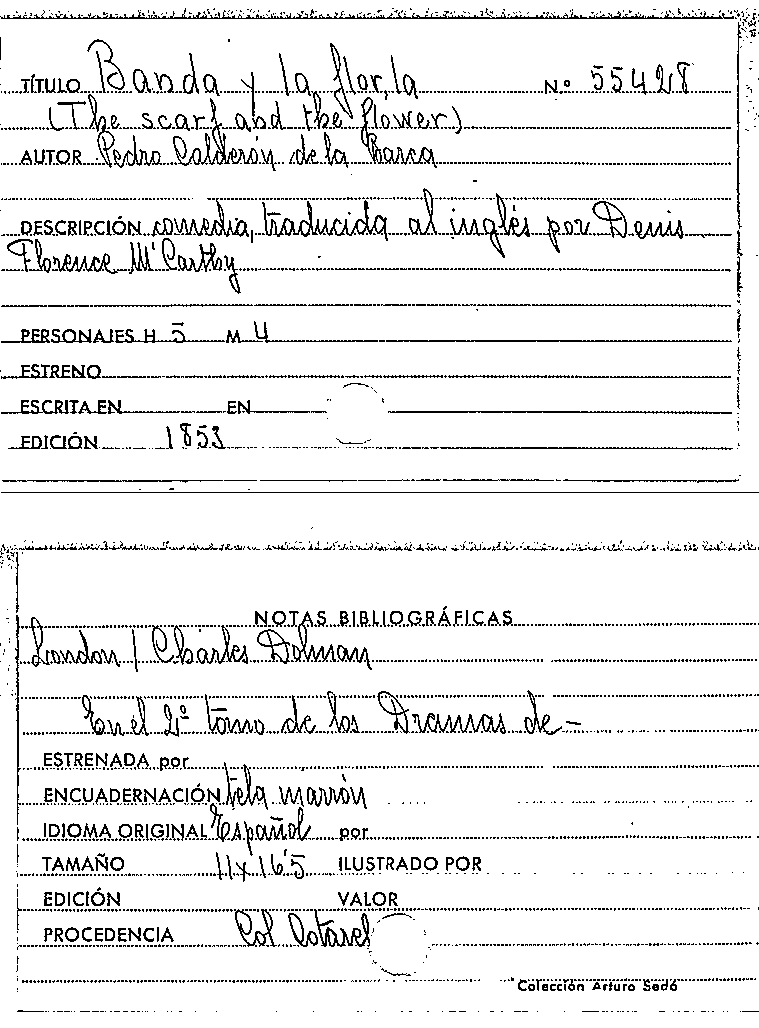 TÍTULO Banda y la flor, la Nº 55428
(The scarf abd the flower)
AUTOR Pedro Calderón de la Barca
DESCRIPCIÓN comedia, traducida al inglés por Denis
Florence M'Carthy
PERSONAJES H 5 M 4
ESTRENO
ESCRITA EN EN
EDICIÓN 1853
NOTAS BIBLIOGRÁFICAS
London / Charles Dolman
En el 2º tomo de los Dramas de -
ESTRENADA por
ENCUADERNACIÓN tela marrón
IDIOMA ORIGINAL Español por
TAMAÑO 11x16'5 ILUSTRADO POR
EDICIÓN VALOR
PROCEDENCIA Col Cotarel
Colección Arturo Sedó